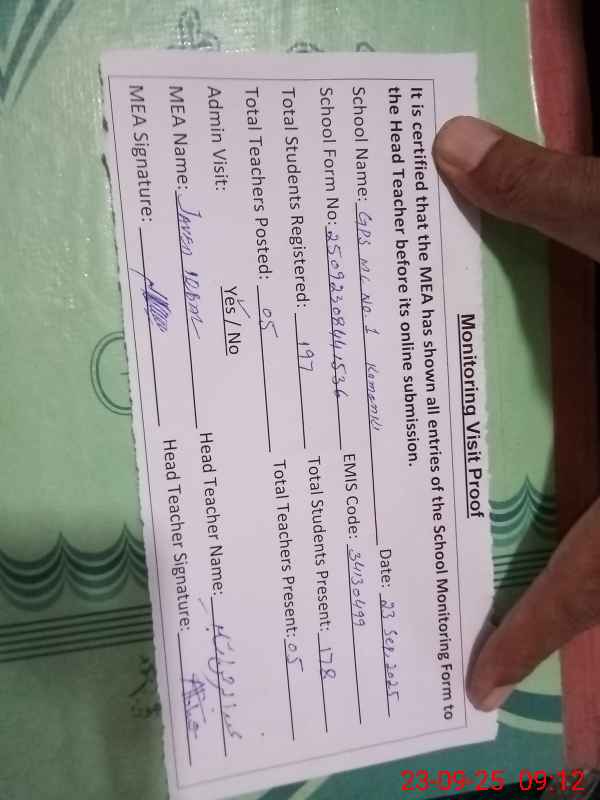 Monitoring Visit Proof
It is certified that the MEA has shown all entries of the School Monitoring Form to
the Head Teacher before its online submission.
School Name: GPS MC No. 1 Kamanki Date: 23 Sep, 2025
School Form No: 25092308441536 EMIS Code: 34130499
Total Students Registered: 197 Total Students Present: 178
Total Teachers Posted: 05 Total Teachers Present: 05
Admin Visit: Yes / No
MEA Name: JAVED IQBAL Head Teacher Name:
MEA Signature: Head Teacher Signature:
23-09-25 09:12